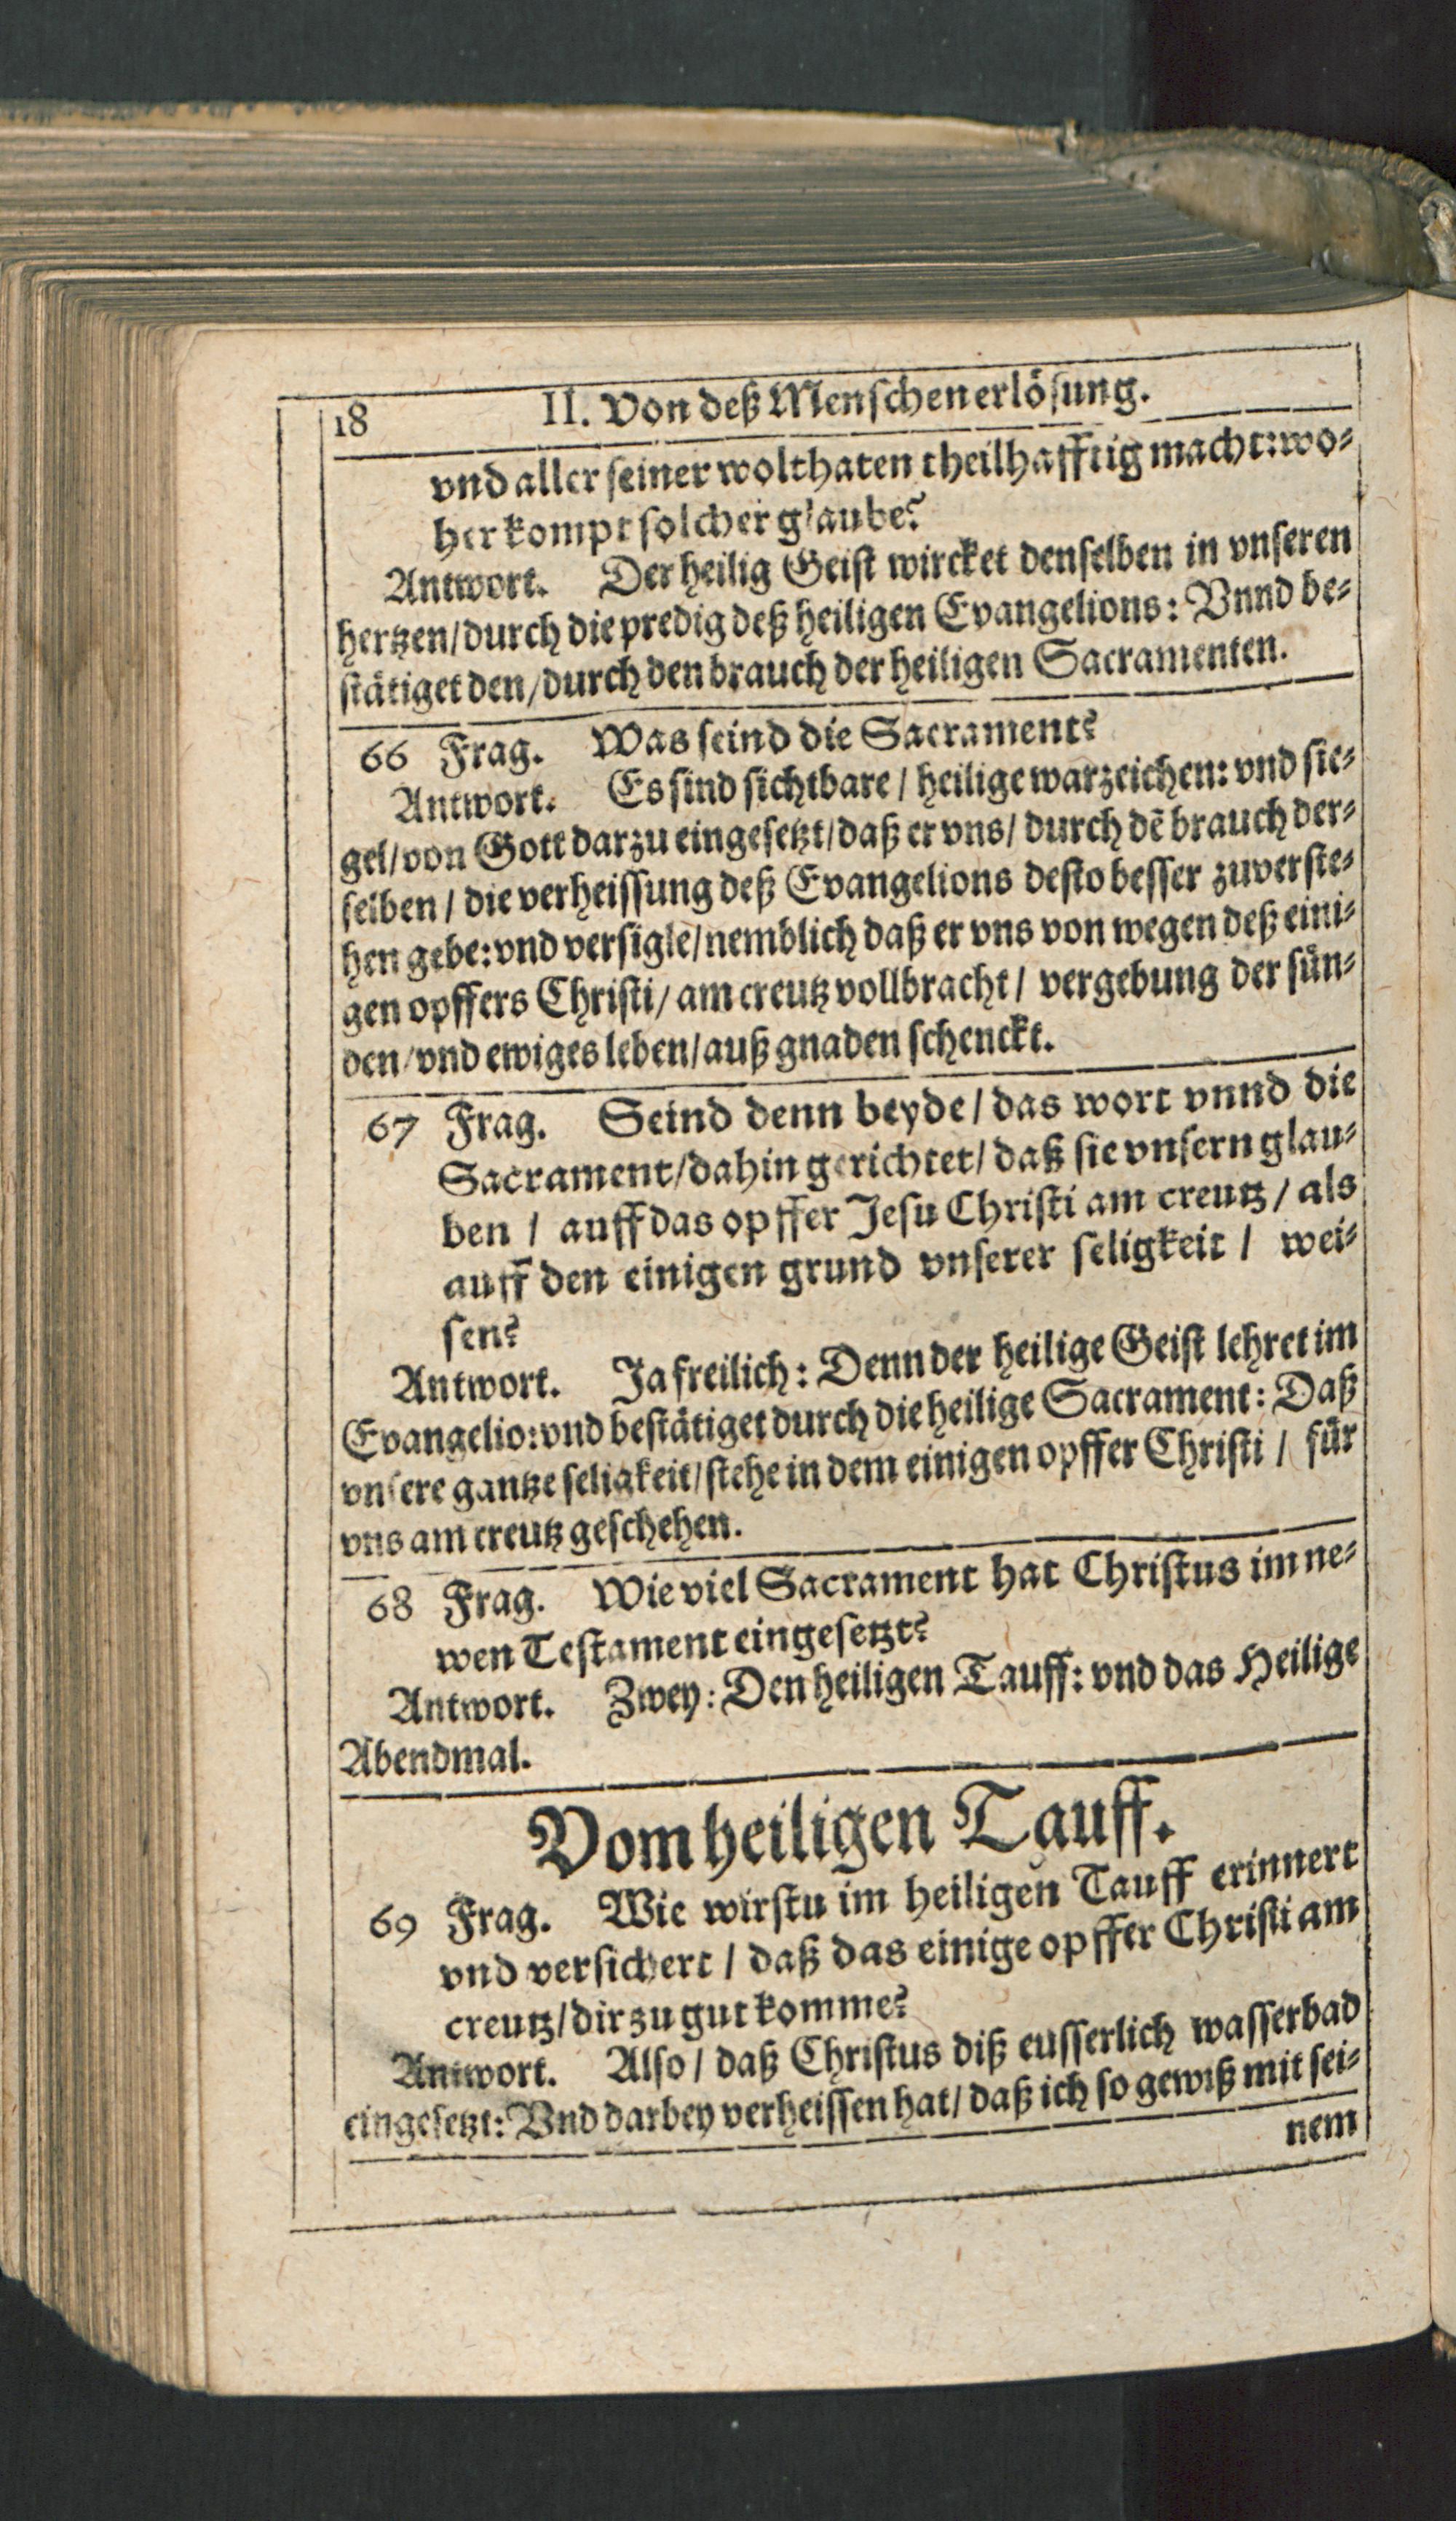 18 II. Von deß Menschen erlösung.
vnd aller seiner wolthaten theilhafftig macht: wo-
her kompt solcher glaube?
Antwort. Der heilig Geist wircket denselben in vnseren
hertzen/durch die predig deß heiligen Evangelions: Vnnd be-
stätiget den/durch den brauch der heiligen Sacramenten.
66 Frag. Was seind die Sacrament?
Antwort. Es sind sichtbare/ heilige warzeichen: vnd sie-
gel/von Gott darzu eingesetzt/daß er vns/ durch dē brauch der-
selben/ die verheissung deß Evangelions desto besser zuverste-
hen gebe: vnd versigle/nemblich daß er vns von wegen deß eini-
gen opffers Christi/ am creutz vollbracht/ vergebung der sün-
den/vnd ewiges leben/auß gnaden schenckt.
67 Frag. Seind denn beyde/ das wort vnnd die
Sacrament/dahin gerichtet/ daß sie vnsern glau-
ben/ auff das opffer Jesu Christi am creutz/ als
auff den einigen grund vnserer seligkeit/ wei-
sen?
Antwort. Ja freilich: Denn der heilige Geist lehret im
Evangelio: vnd bestätiget durch die heilige Sacrament: Daß
vnsere gantze seligkeit/stehe in dem einigen opffer Christi/ für
vns am creutz geschehen.
68 Frag. Wie viel Sacrament hat Christus im ne-
wen Testament eingesetzt?
Antwort. Zwey: Den heiligen Tauff: vnd das Heilige
Abendmal.
Vom heiligen Tauff.
69 Frag. Wie wirstu im heiligen Tauff erinnert
vnd versichert/ daß das einige opffer Christi am
creutz/dir zu gut komme?
Antwort. Also/ daß Christus diß eusserlich wasserbad
eingesetzt: Vnd darbey verheissen hat/ daß ich so gewiß mit sei-
nem